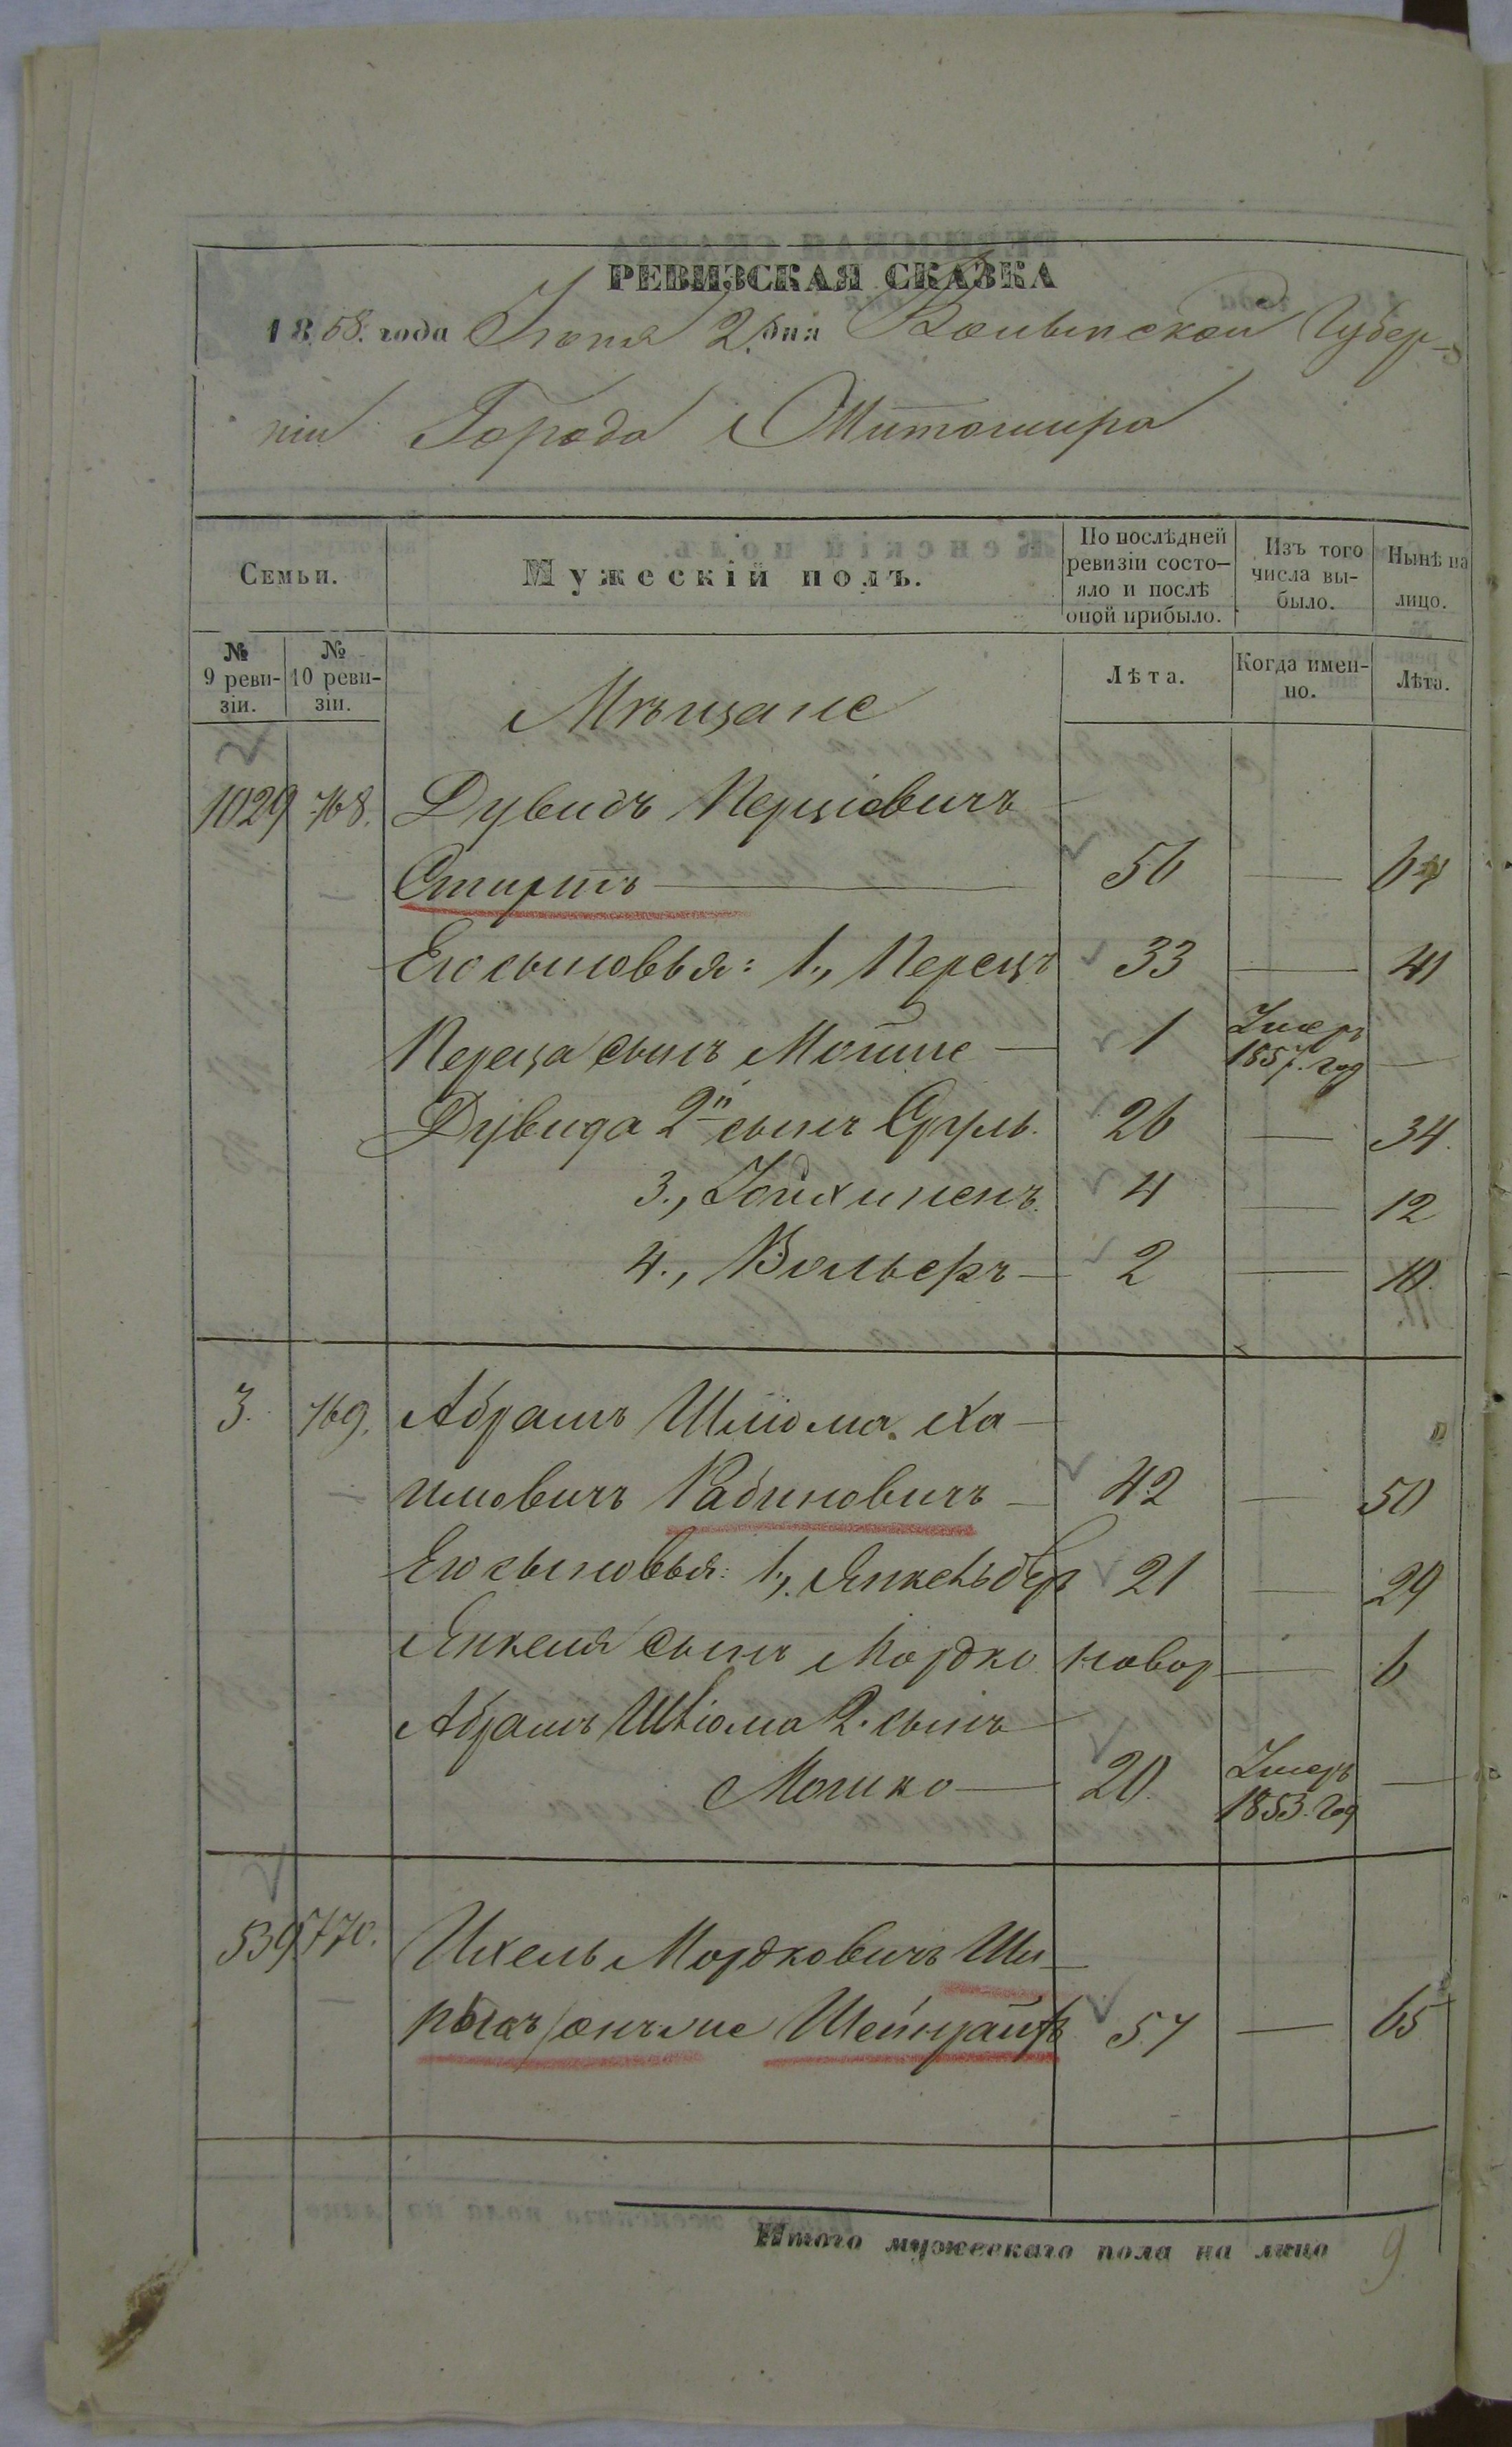 РЕВИЗСКАЯ СКАЗКА
1858. года Июня 2. дня Волынской Губер-
ніи Города Житомира
Семьи.
Мужескій полъ.
По послѣдней ревизіи состо-яло и послѣ оной прибыло.
Изъ того числа вы-было.
Нынѣ на лицо.
№ 9 реви-зіи.
№ 10 реви-зіи.
Лѣта.
Когда имен-но.
Лѣта.
Мѣщане
1029 768. Дувидъ Перціовичъ
56 — 64
Его сыновья: 1., Перецъ 33 — 41
Переца сынъ Мойше — 1 Умеръ 1857. год —
Дувида 2й сынъ Сруль. 26 — 34.
3., 4 — 12
4., Вольфъ — 2 — 10.
3. 769. Абрамъ Шліома Ха-
имовичъ Рабиновичъ — 42 — 50
Его сыновья: 1., Янкель Беръ 21 — 29
Янкеля сынъ Мордко новор — 6
Абрамъ Шліома 2. сынъ
Мошко — 20. Умеръ 1853. год —
539 770. Ихель Мордковичъ
онъ же 57 — 65
Итого мужескаго пола на лицо 9